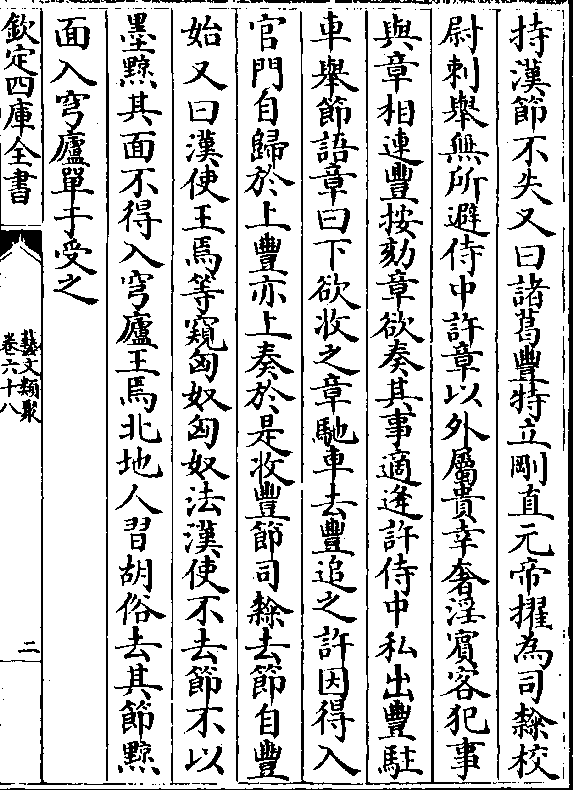 持漢節不失又曰諸葛豐特立剛直元帝擢為司𨽻校
尉刺舉無所避侍中許章以外屬貴幸奢淫賓客犯事
與章相連豐按劾章欲奏其事適逢許侍中私出豐駐
車舉節語章曰下欲收之章馳車去豐追之許因得入
官門自歸於上豐亦上奏於是收豐節司𨽻去節自豐
始又曰漢使王焉等窺匈奴匈奴法漢使不去節不以
墨黥其面不得入穹廬王焉北地人習胡俗去其節黥
面入穹廬單于受之
欽定四庫全書
藝文類聚
卷六十八
二